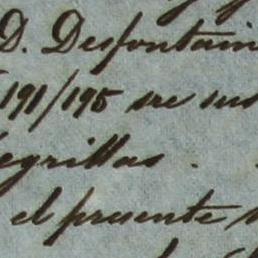 D. Desfontain
191/195 se sus
egrillas.
el presente